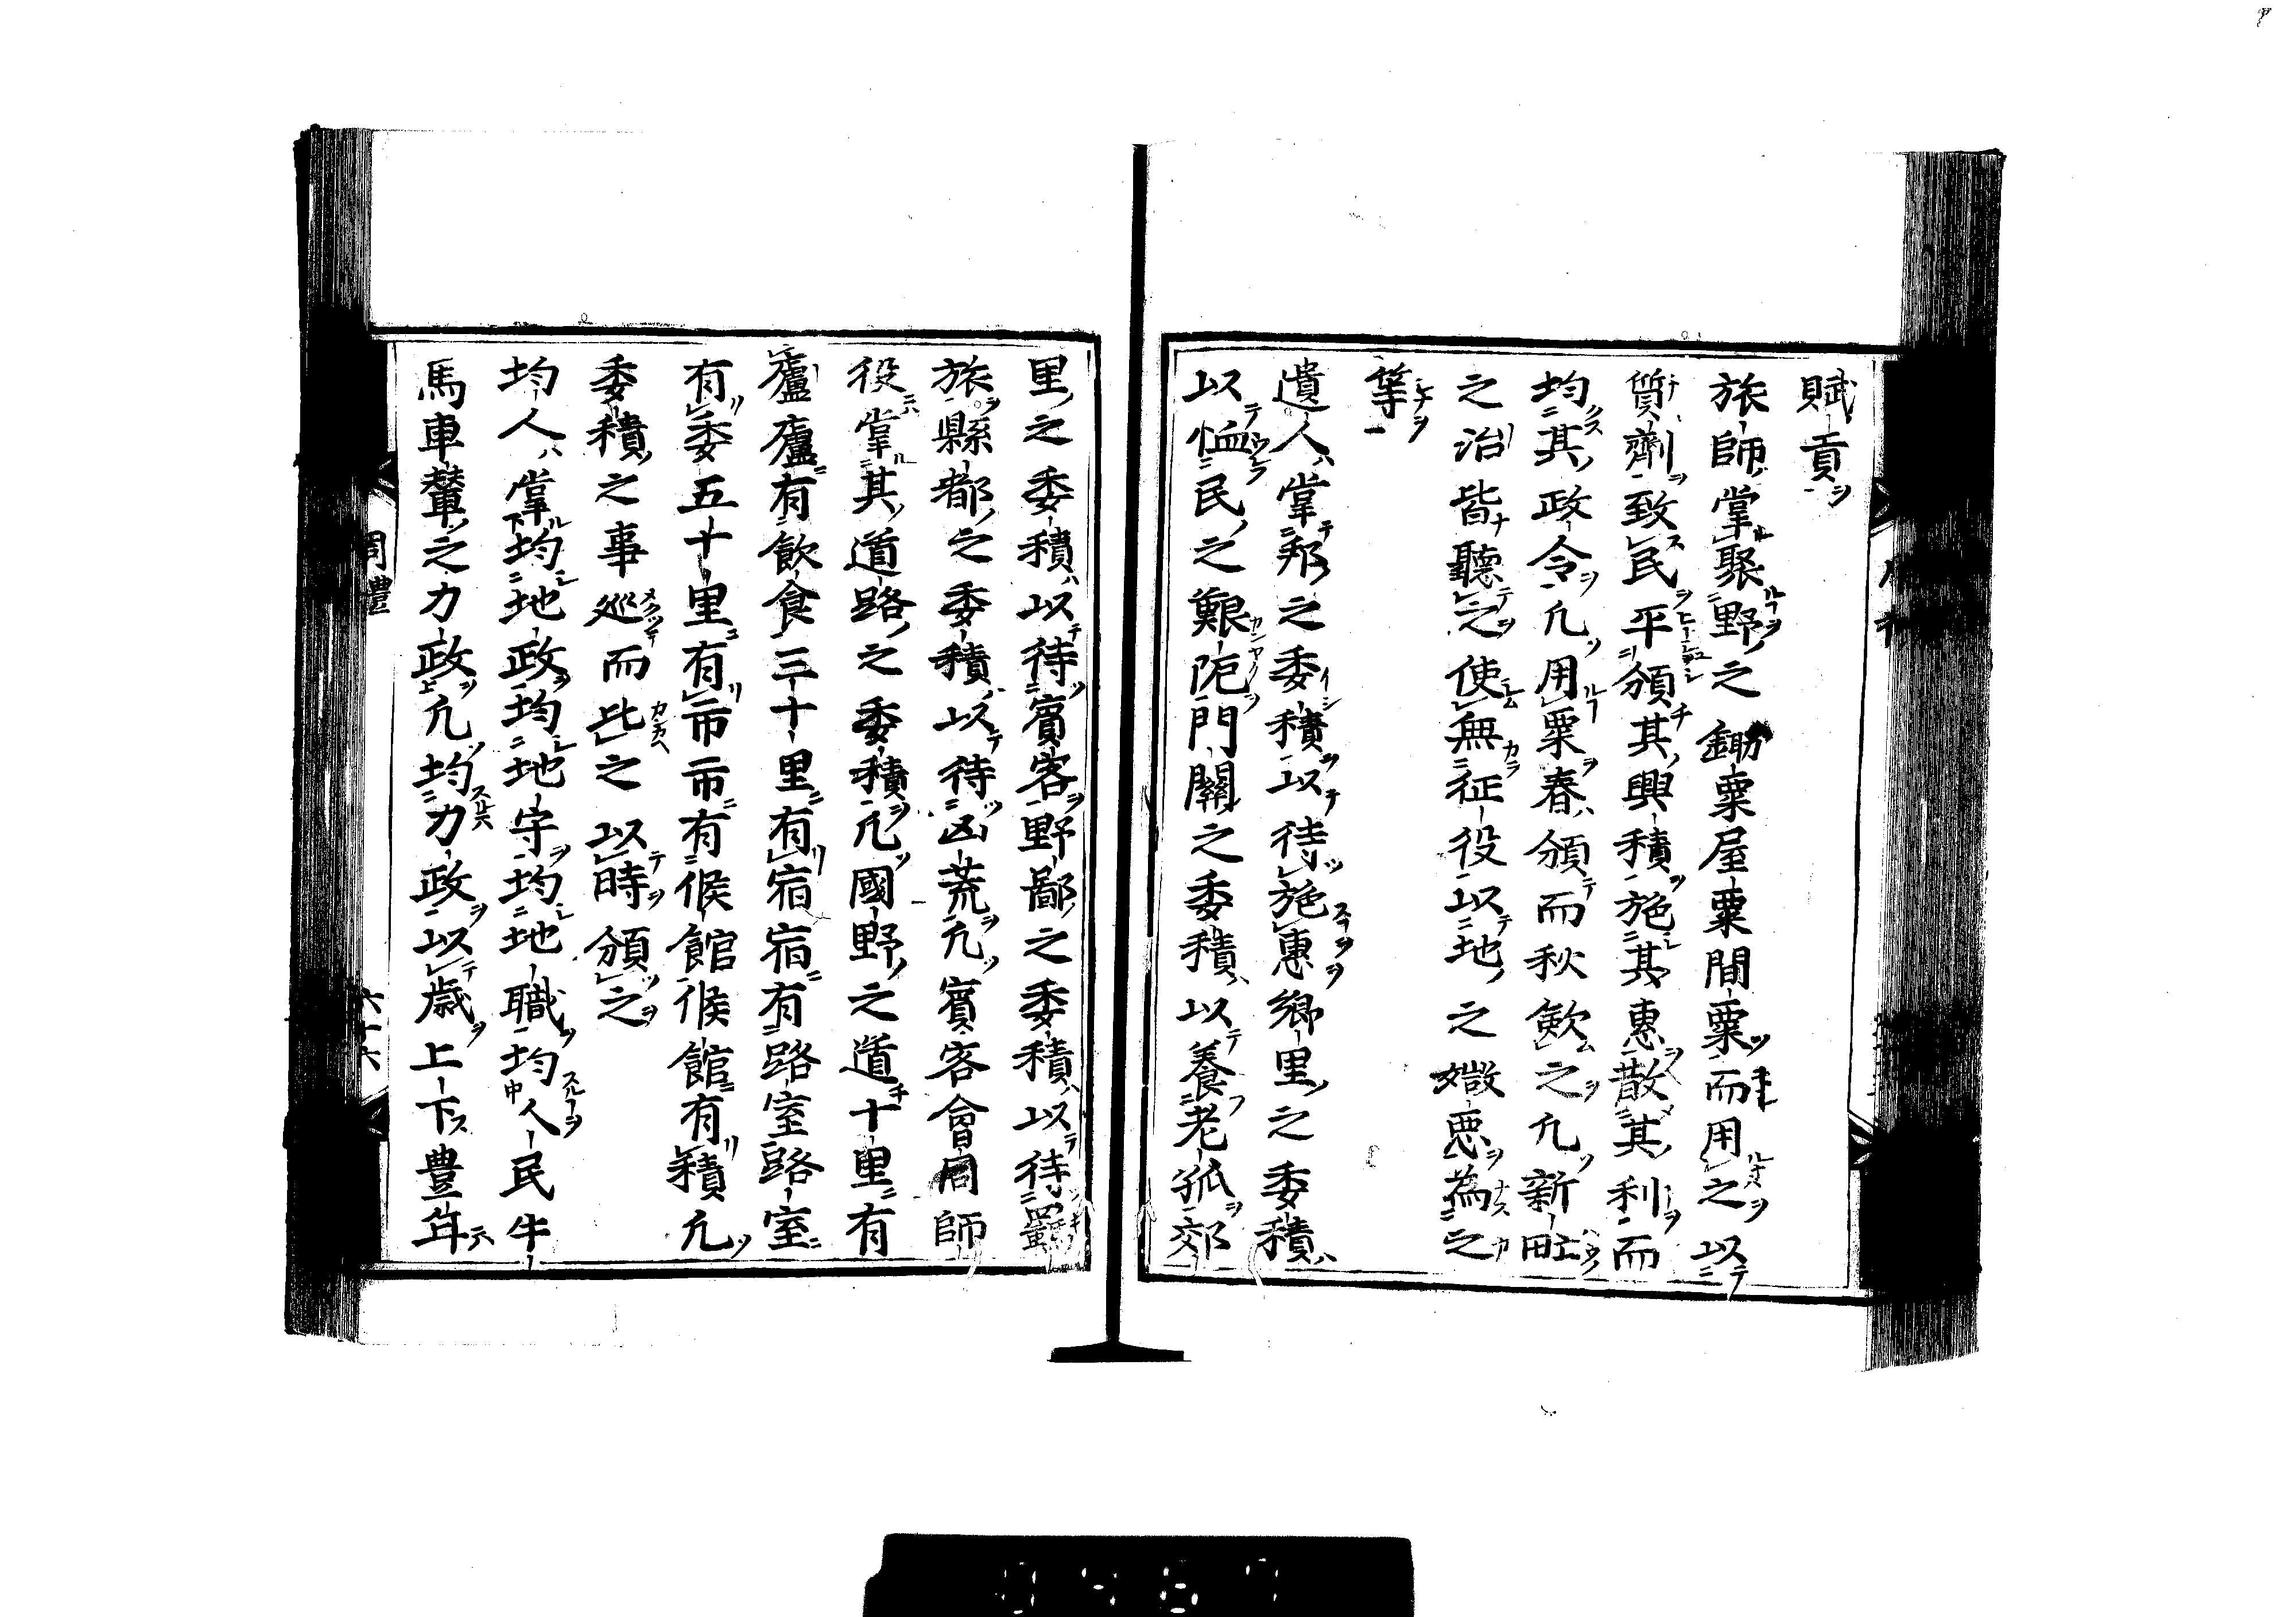 賦貢
旅師掌聚野之鋤粟屋粟間粟而用之以
質劑致民平頒其興積施其惠散其利而
均其政令凢用粟春頒而秋斂之凢新甿
之治皆聽之使無征役以地之媺惡為之
等
遺人掌邦之委積以待施惠郷里之委積
以恤民之艱阨門關之委積以養老孤郊
里之委積以待賓客野鄙之委積以待羈
旅縣都之委積以待凶荒凢賓客會同師
役掌其道路之委積凢國野之道十里有
廬廬有飲食三十里有宿宿有路室路室
有委五十里有市市有候館候館有積凢
委積之事巡而比之以時頒之
均人掌均地政均地守均地職均人民牛
馬車輦之力政凢均力政以歳上下豊年
周禮
六十六